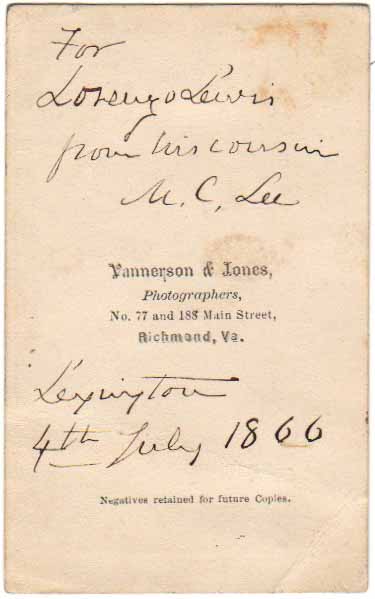 For
Lorenzo Lewis
from his cousin
M. C. Lee
Vannerson & Jones,
Photographers,
No. 77 and 188 Main Street,
Richmond, Va.
Lexington
4th July 1866
Negatives retained for future Copies.